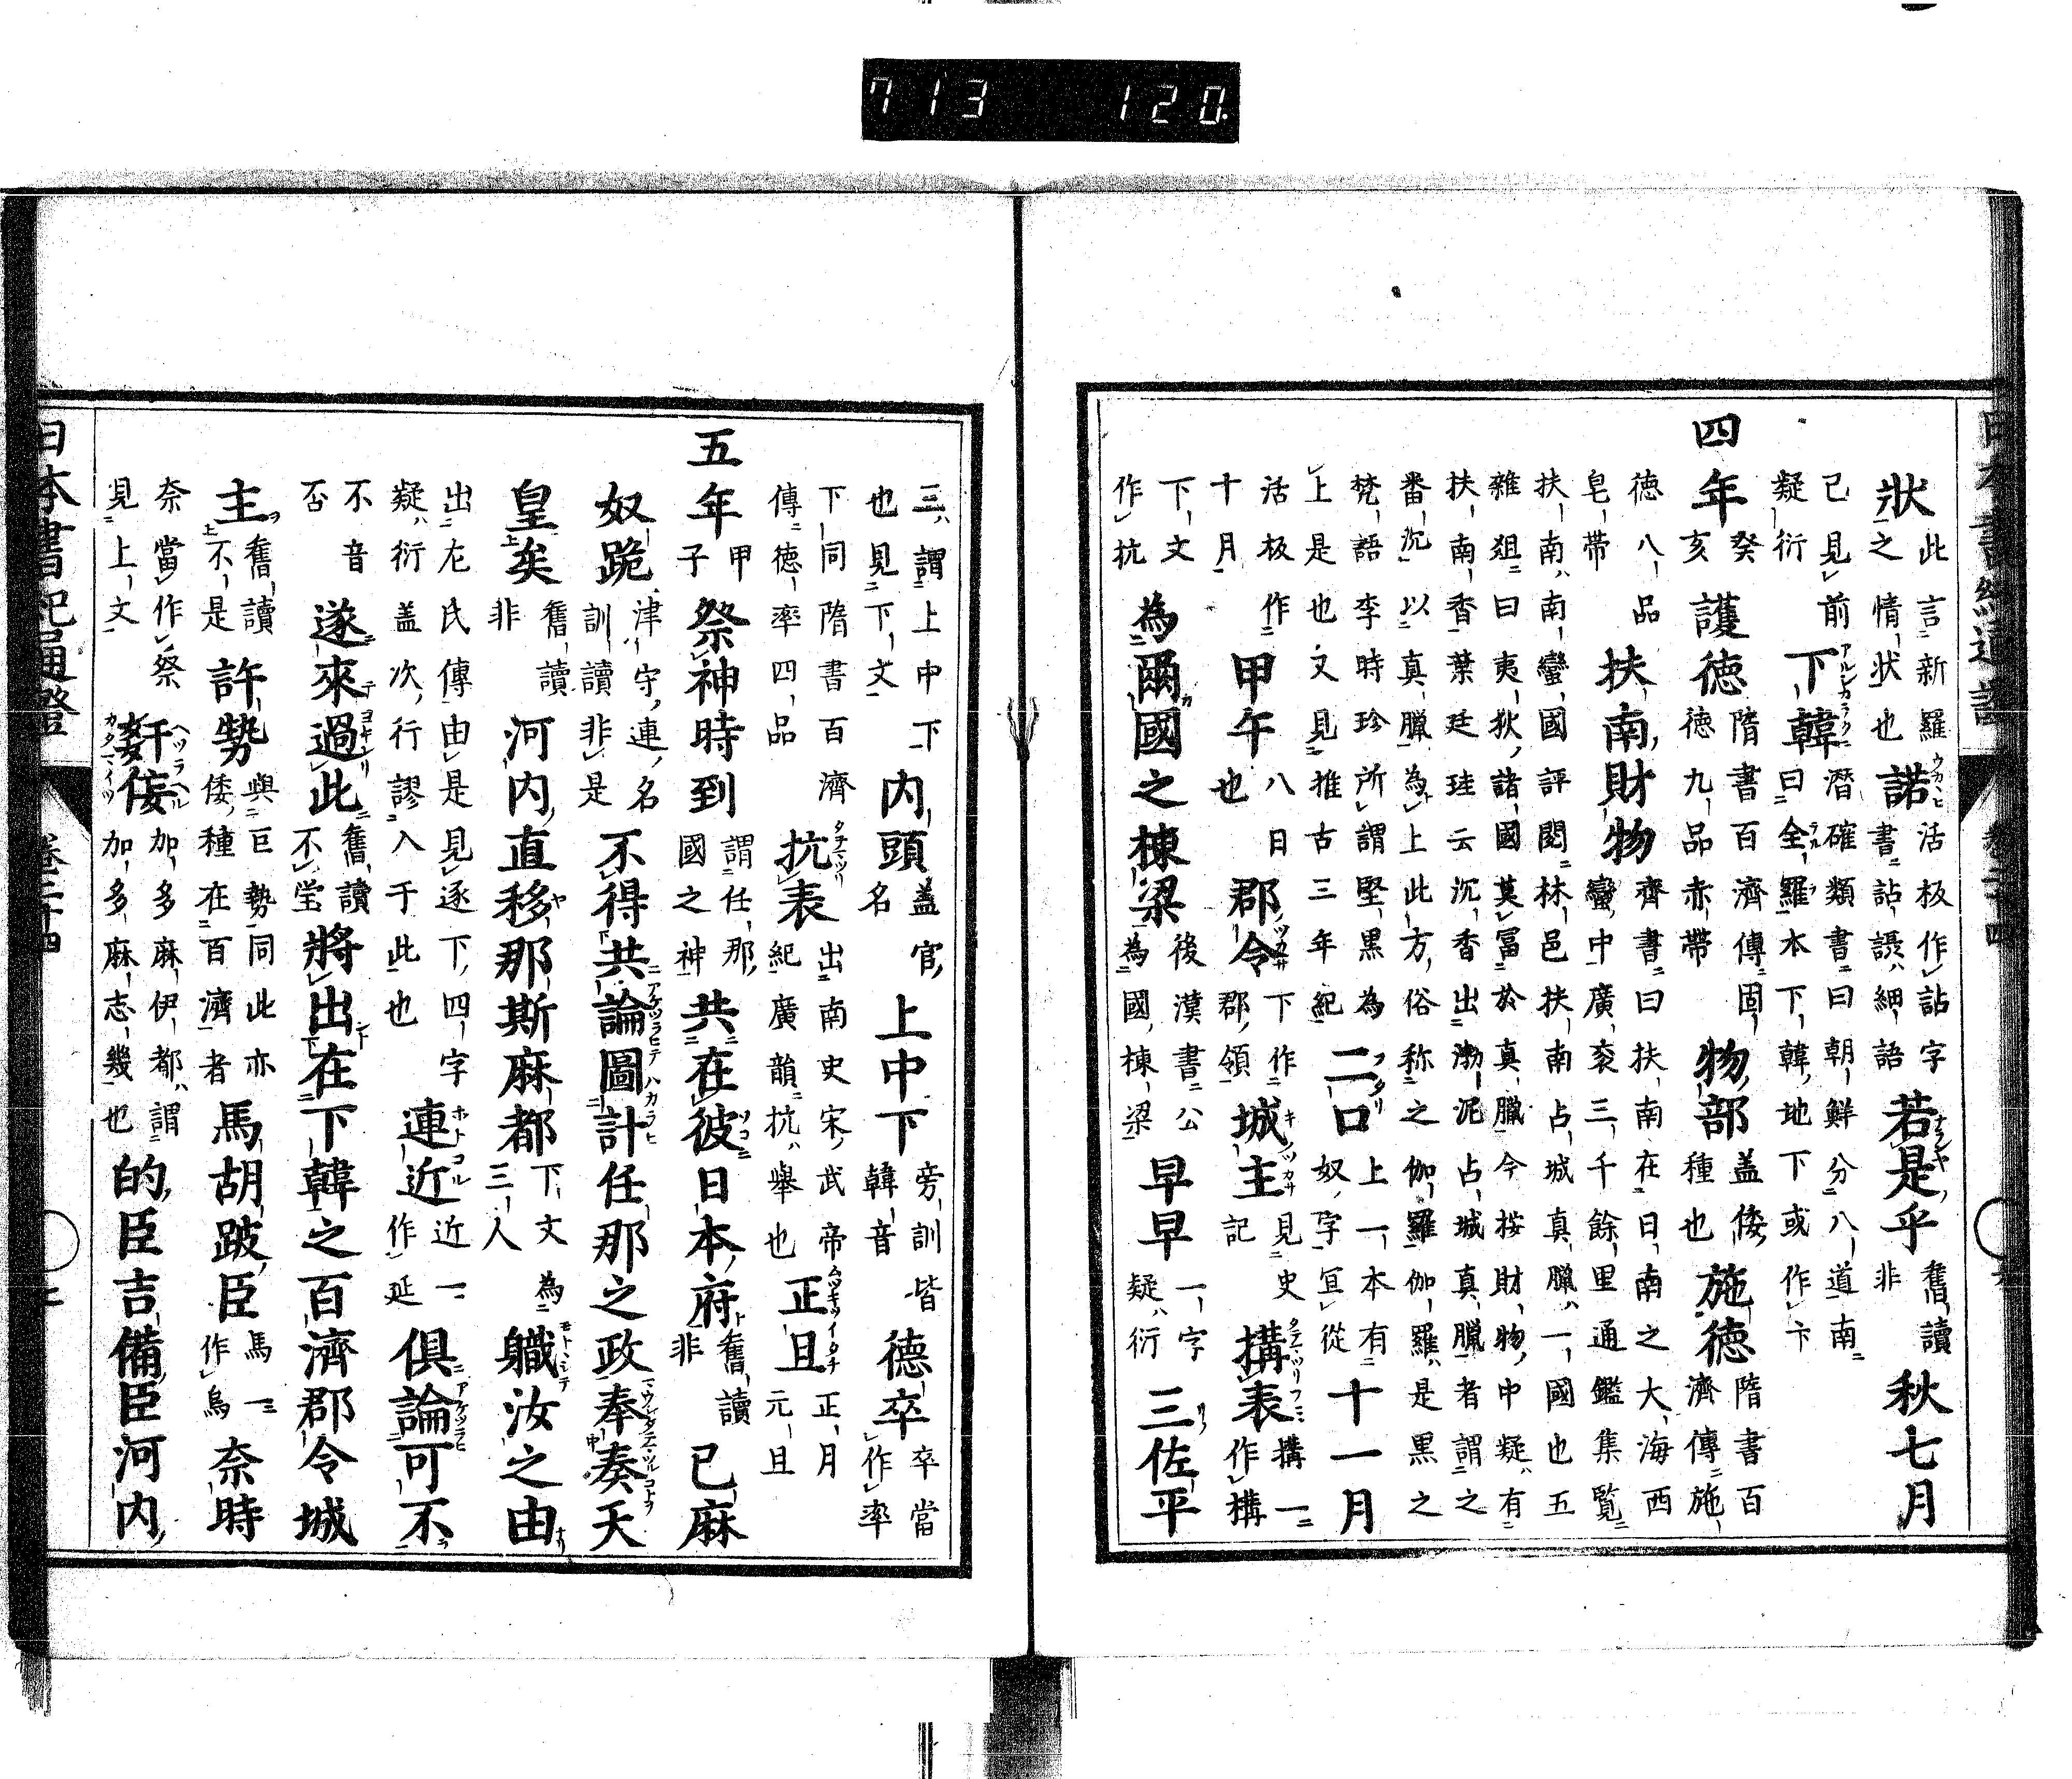 狀此言新羅之情状也諾活板作詀字書詀誤細語若是乎舊讀非秋七月
已見前疑衍下韓潛確類書曰朝鮮分八道南曰全羅本下韓地下或作卞
四年癸亥護德隋書百濟傳固德九品赤帶物部蓋倭種也施德隋書百濟傳施
德八品皂帶扶南財物齊書曰扶南在日南之大海西蠻中廣袤三千餘里通鑑集覽
扶南南蠻國評閱林邑扶南占城真臘一國也五雜俎曰夷狄諸國莫冨於真臘今按財物中疑有
扶南香葉廷珪云沉香出渤泥占城真臘者謂之番沉以真臘為上此方俗称之伽羅伽羅是黑之
梵語李時珍所謂堅黑為上是也文見推古三年紀二口上一本有奴字宜從十一月
活板作十月甲午八日也郡令下作郡領城主見史記搆表搆一作構
下文作抗為爾國之棟梁後漢書公為國棟梁早早一字疑衍三佐平
三謂上中下也見下文内頭蓋官名上中下旁訓皆韓音德卒卒當作率
下同隋書百濟傳德率四品抗表出南史宋武帝紀廣韻抗舉也正旦正月元旦
五年甲子祭神時到謂任那國之神共在彼日本府舊讀非已麻
奴跪津守連名訓讀非是不得共論圖計任那之政奉奏天
皇矣舊讀非河内直移那斯麻都下文為三人職汝之由
出左氏傳由是見逐下四字疑衍蓋次行謬入于此也連近近一作延俱論可不
不音否遂來過此舊讀不瑩將出在下韓之百濟郡令城
主舊讀不是許勢與巨勢同此亦倭種在百濟者馬胡跛臣馬一作烏奈時
奈當作祭見上文奸佞加多麻伊都謂加多麻志幾也的臣吉備臣河内
日本書紀通證 卷二十四
713 120